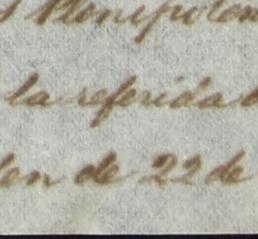 Plenipoten
la referida
en de 22 de